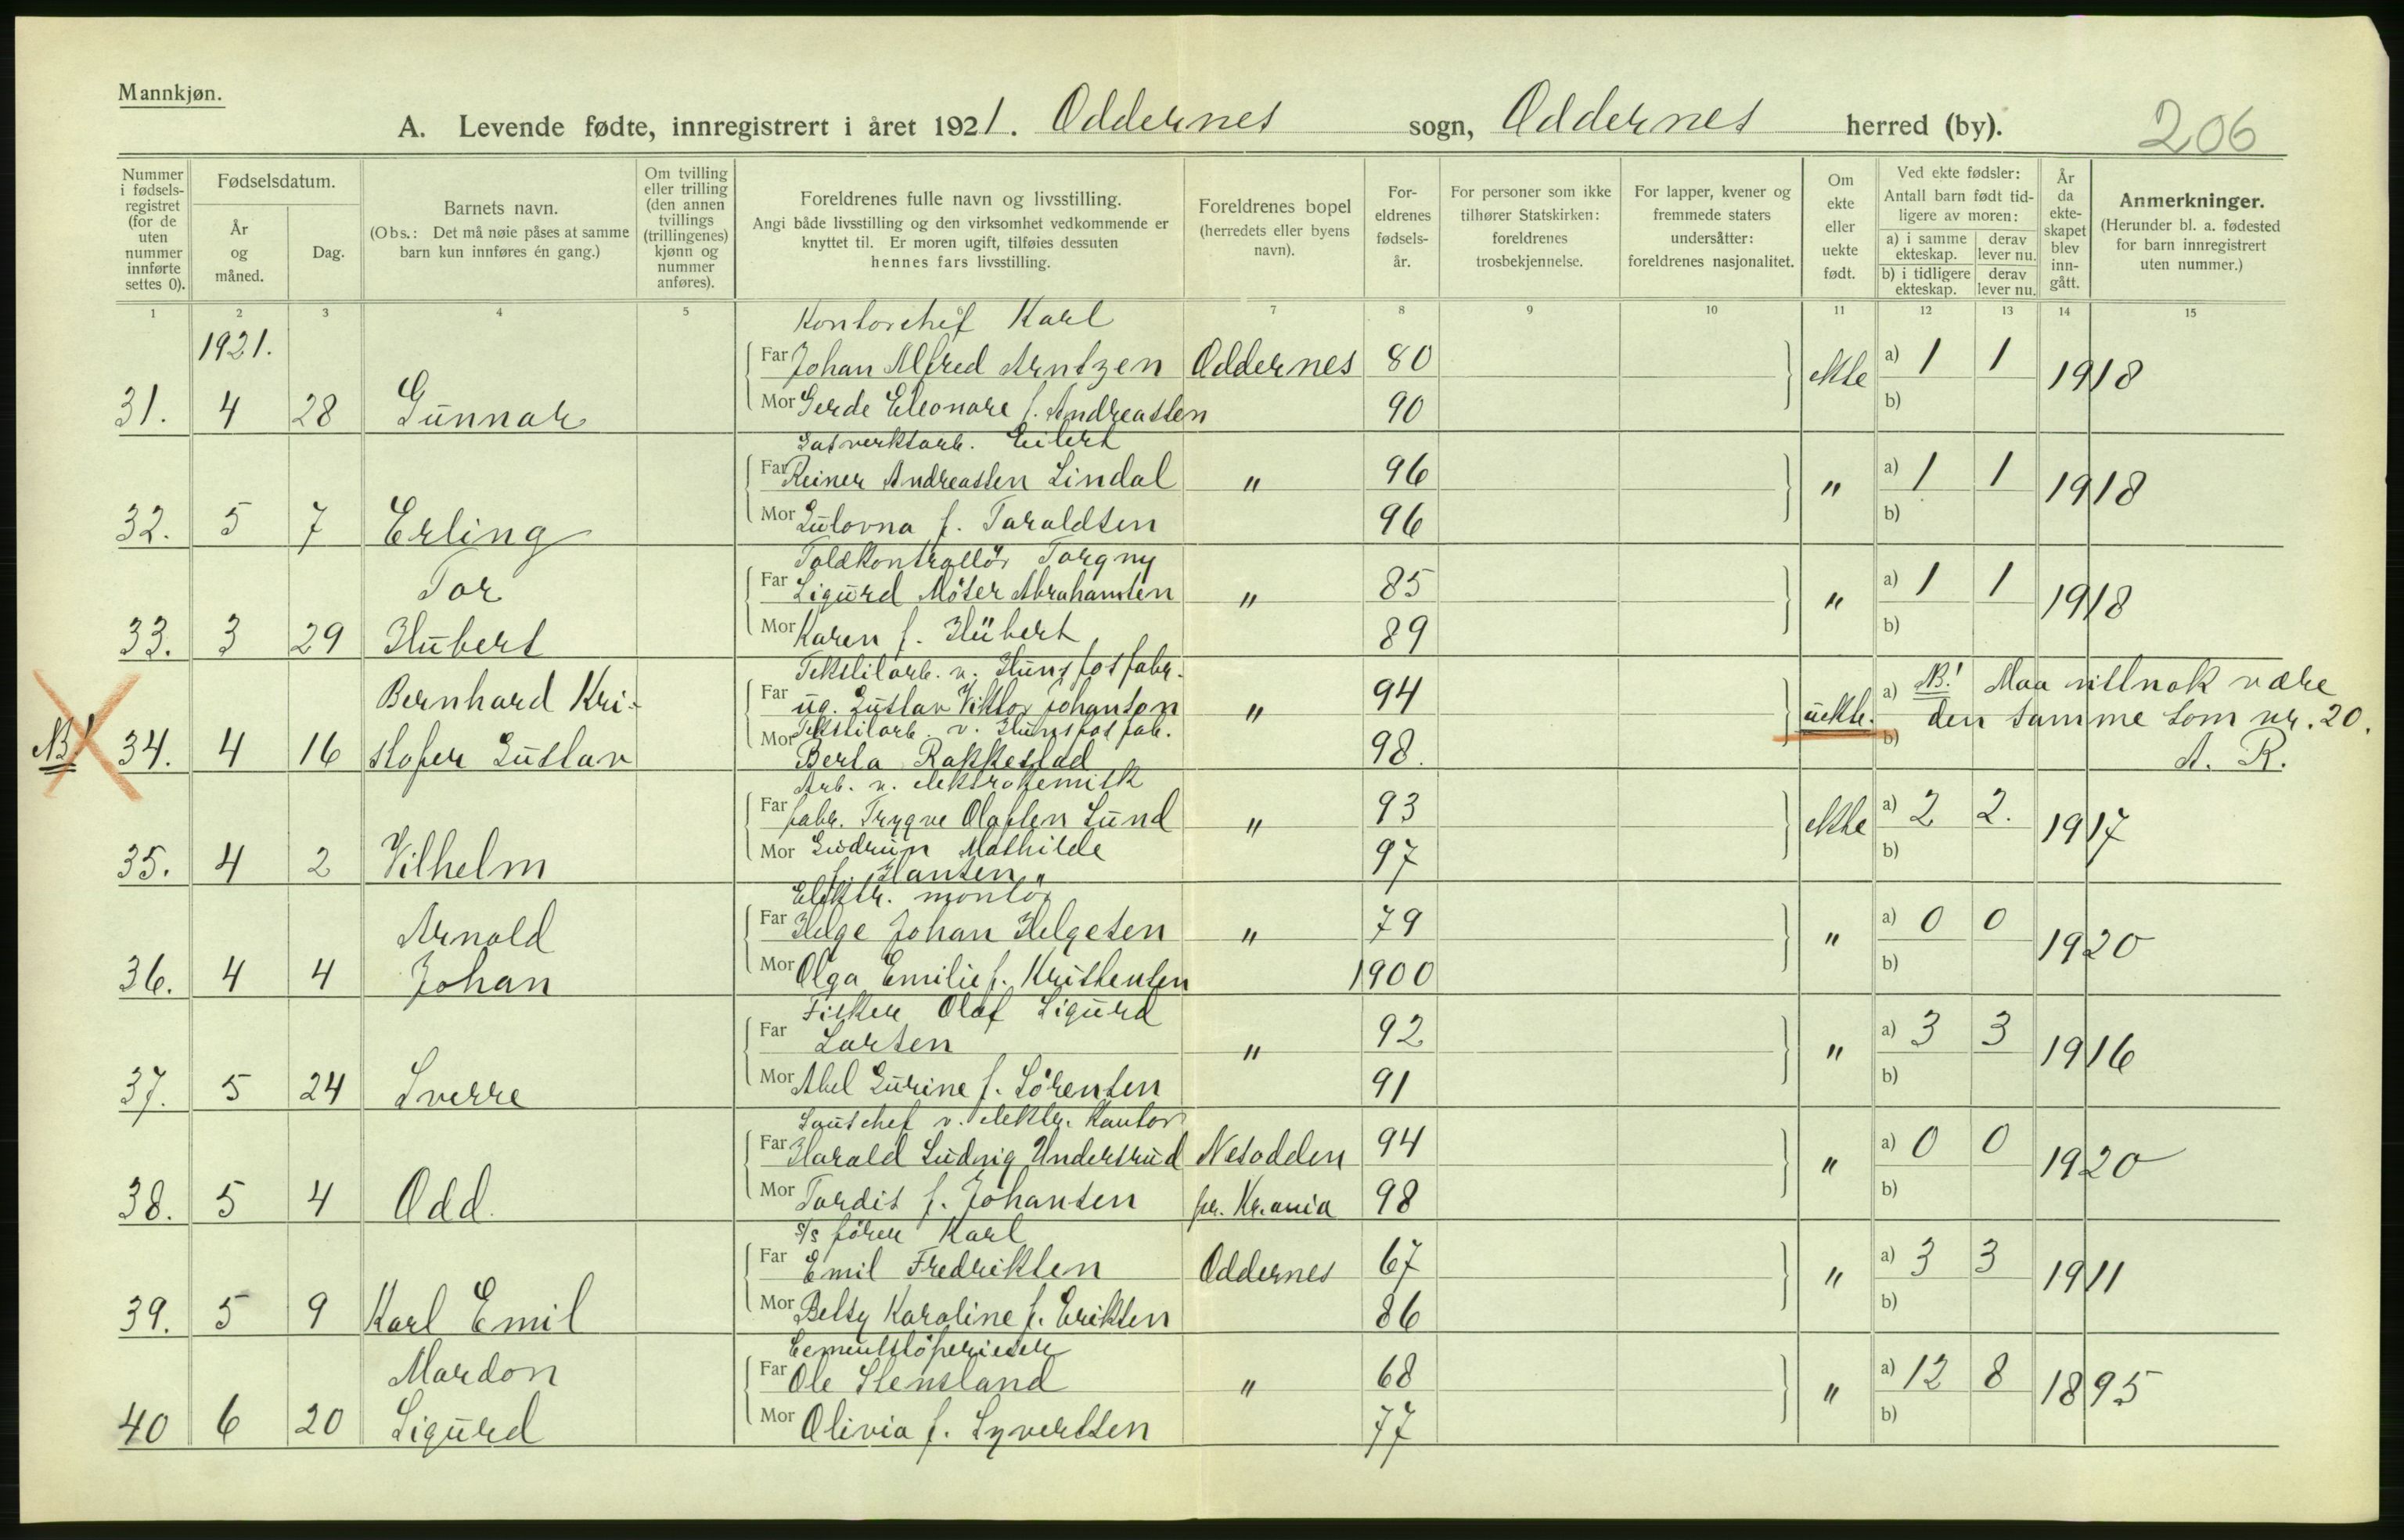 Mannkjøn.
A. Levende fødte, innregistrert i året 1921. Oddernes sogn, Oddernes herred (by). 206
Nummer i fødsels-registret (for de uten nummer innførte settes 0).
Fødselsdatum.
År og måned.
Dag.
Barnets navn.
(Obs.: Det må nøie påses at samme barn kun innføres én gang.)
Om tvilling eller trilling (den annen tvillings (trillingenes) kjønn og nummer anføres).
Foreldrenes fulle navn og livsstilling.
Angi både livsstilling og den virksomhet vedkommende er knyttet til. Er moren ugift, tilføies dessuten hennes fars livsstilling.
Foreldrenes bopel (herredets eller byens navn).
For-eldrenes fødsels-år.
For personer som ikke tilhører Statskirken: foreldrenes trosbekjennelse.
For lapper, kvener og fremmede staters undersåtter: foreldrenes nasjonalitet.
Om ekte eller uekte født.
Ved ekte fødsler: Antall barn født tid-ligere av moren:
a) i samme ekteskap. derav lever nu.
b) i tidligere ekteskap. derav lever nu.
År da ekte-skapet blev inn-gått.
Anmerkninger.
(Herunder bl. a. fødested for barn innregistrert uten nummer.)
1 2 3 4 5 7 8 9 10 11 12 13 14 15
1921.
Kontorchef Karl
Far Johan Alfred Arntzen Oddernes 80 ekte a) 1 1 1918
31. 4 28 Gunnar Mor Gerde Eleonare f. Andreassen 90 b)
Gasverksarb. Eilert
Far Reiner Andreassen Lindal " 96 " a) 1 1 1918
32. 5 7 Erling Mor Gulovna f. Taraldsen 96 b)
Toldkontrollör Torgny
Tor Far Sigurd Möser Abrahamsen " 85 " a) 1 1 1918
33. 3 29 Hubert Mor Karen f. Hübert 89 b)
Tekstilarb. v. Hunsfos fabr.
Bernhard Kri- Far ug. Gustav Viktor Johanson " 94 uekte. a) NB! Maa vistnok være
den samme som nr. 20.
Mor Tekstilarb. v. Hunsfos fab. b)
NB! 34. 4 16 stofer Gustav Berta Rakkestad 98. A. R.
Arb. v. elektrokemisk
Far fabr. Trygve Olafsen Lund " 93 ekte a) 2 2. 1917
35. 4 2 Vilhelm Mor Gudrun Mathilde 97 b)
f. Hansen
Elektr. montör
Arnold Far Helge Johan Helgesen " 79 " a) 0 0 1920
36. 4 4 Johan Mor Olga Emilie f. Kristensen 1900 b)
Fisker Olaf Sigurd
Far Larsen " 92 " a) 3 3 1916
37. 5 24 Sverre Mor Abel Gurine f. Sörensen 91 b)
v. elektr. Kontor
Far Harald Ludvig Undersrud Nesodden 94 " a) 0 0 1920
38. 5 4 Odd. Mor Tordis f. Johansen pr. Kr.ania 98 b)
s/s förer Karl
Far Emil Fredriksen Oddernes 67 " a) 3 3 1911
39. 5 9 Karl Emil Mor Betsy Karoline f. Eriksen 86 b)
Cementstöperieier
Mardon Far Ole Stensland " 68 " a) 12 8 1895
40 6 20 Sigurd Mor Olivia f. Syvertsen 77 b)